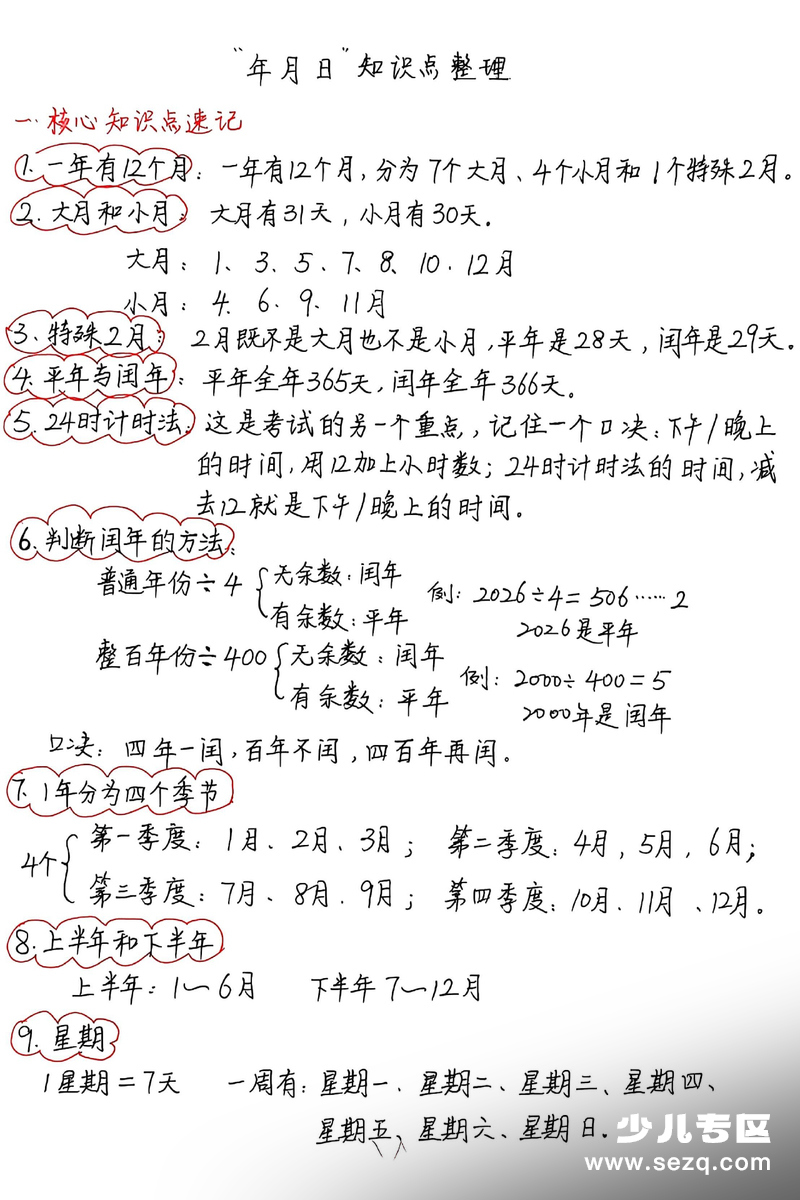 “年月日”知识点整理
一.核心知识点速记
1.一年有12个月：一年有12个月,分为7个大月、4个小月和1个特殊2月。
2.大月和小月：大月有31天，小月有30天。
大月：1、3、5、7、8、10.12月
小月：4、6、9、11月
3.特殊2月：2月既不是大月也不是小月,平年是28天，闰年是29天。
4.平年与闰年：平年全年365天,闰年全年366天。
5.24时计时法：这是考试的另一个重点，记住一个口决：下午/晚上
的时间,用12加上小时数；24时计时法的时间,减
去12就是下午/晚上的时间。
6.判断闰年的方法：
普通年份÷4 无余数：闰年 例：2026÷4=506……2
有余数：平年 2026是平年
整百年份÷400 无余数：闰年 例：2000÷400=5
有余数：平年 2000年是闰年
口决：四年一闰,百年不闰，四百年再闰。
7.1年分为四个季节
4个 第一季度：1月、2月、3月； 第二季度：4月，5月，6月；
第三季度：7月、8月.9月； 第四季度：10月、11月、12月。
8.上半年和下半年
上半年：1~6月 下半年7~12月
9.星期
1星期=7天 一周有：星期一.星期二、星期三、星期四、
星期五、星期六、星期日.
少儿专区
www.sezq.com